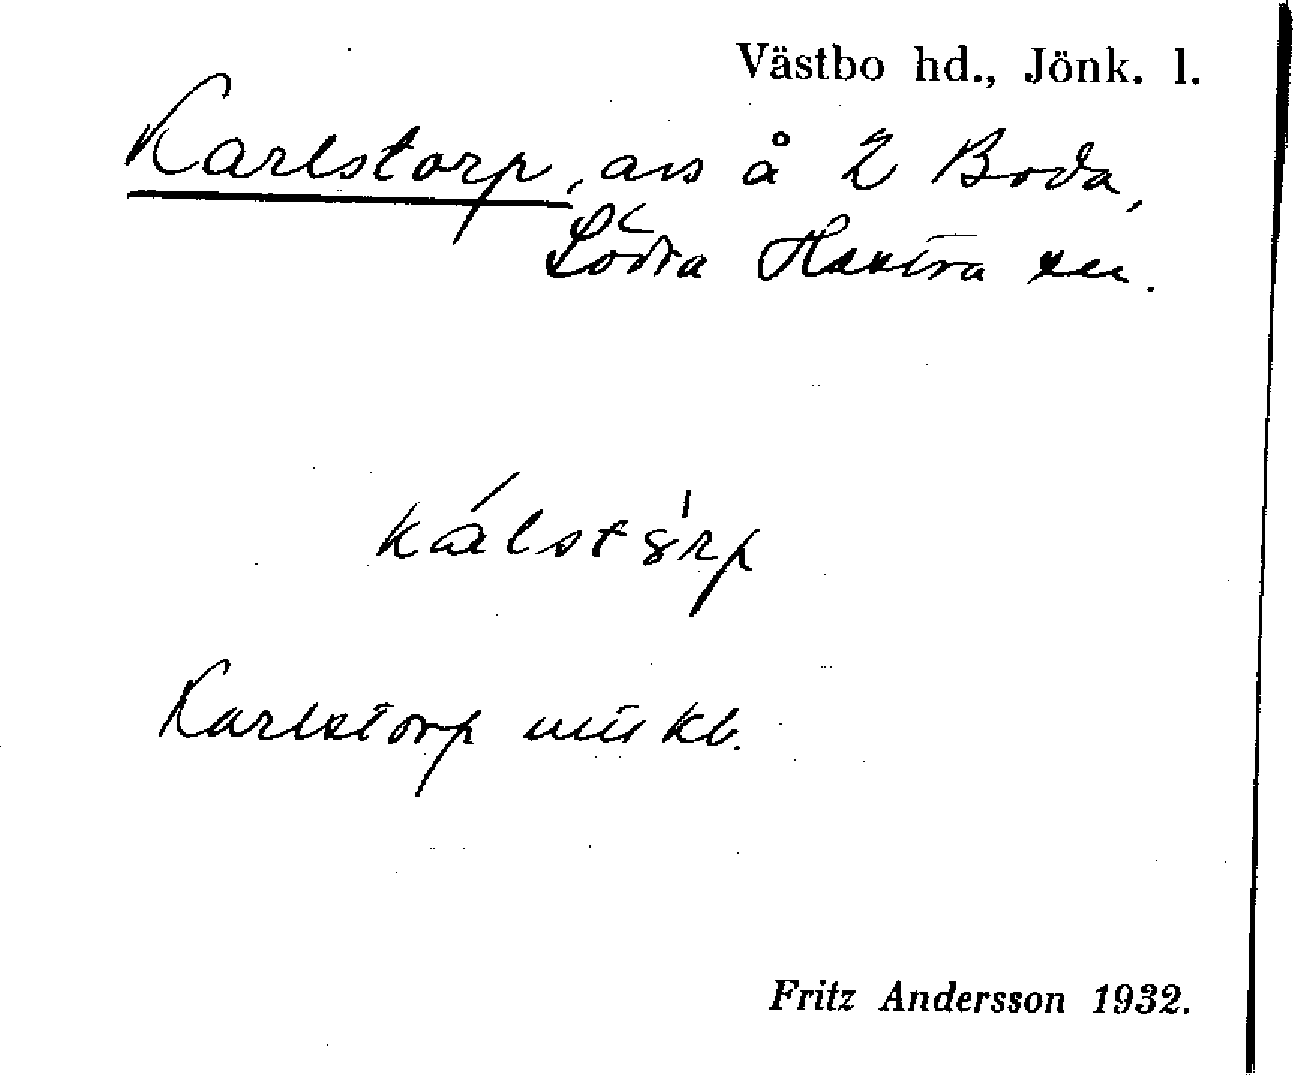 Västbo hd., Jönk. l.
Karlstorp, avs å 2 Boda,
Södra Hestra sn.
kálstȣ̍rp
Karlstorp kb.
Fritz Andersson 1932.